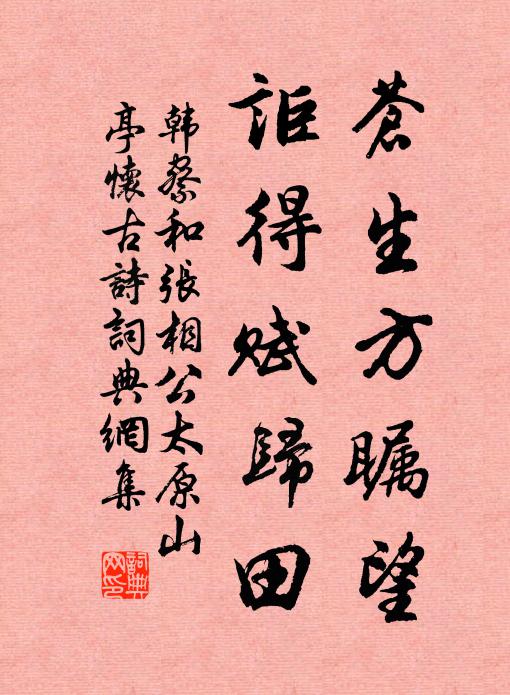 蒼生方瞩望
詎得赋歸田
韩察和張相公太原山
亭懷古詩詞典網集
詞典网印